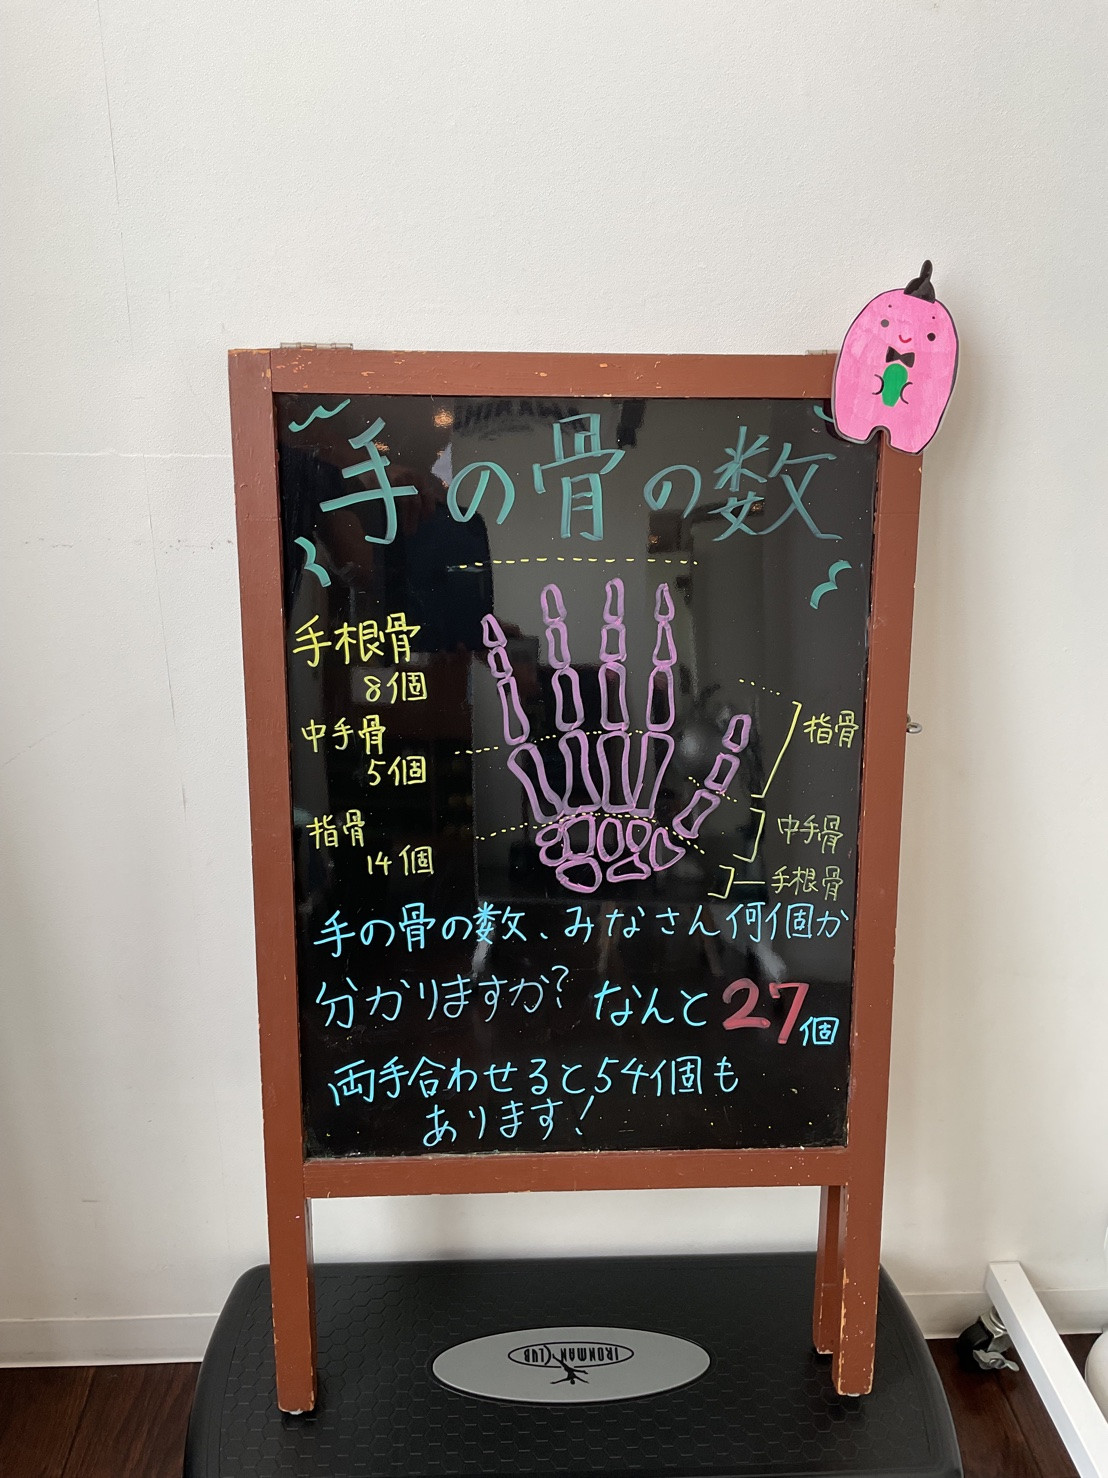 手の骨の数
手根骨
8個
中手骨
5個
指骨
14個
指骨
中手骨
手根骨
手の骨の数、みなさん何個か
分かりますか? なんと27個
両手合わせると54個も
あります!
IRONMAN CLUB